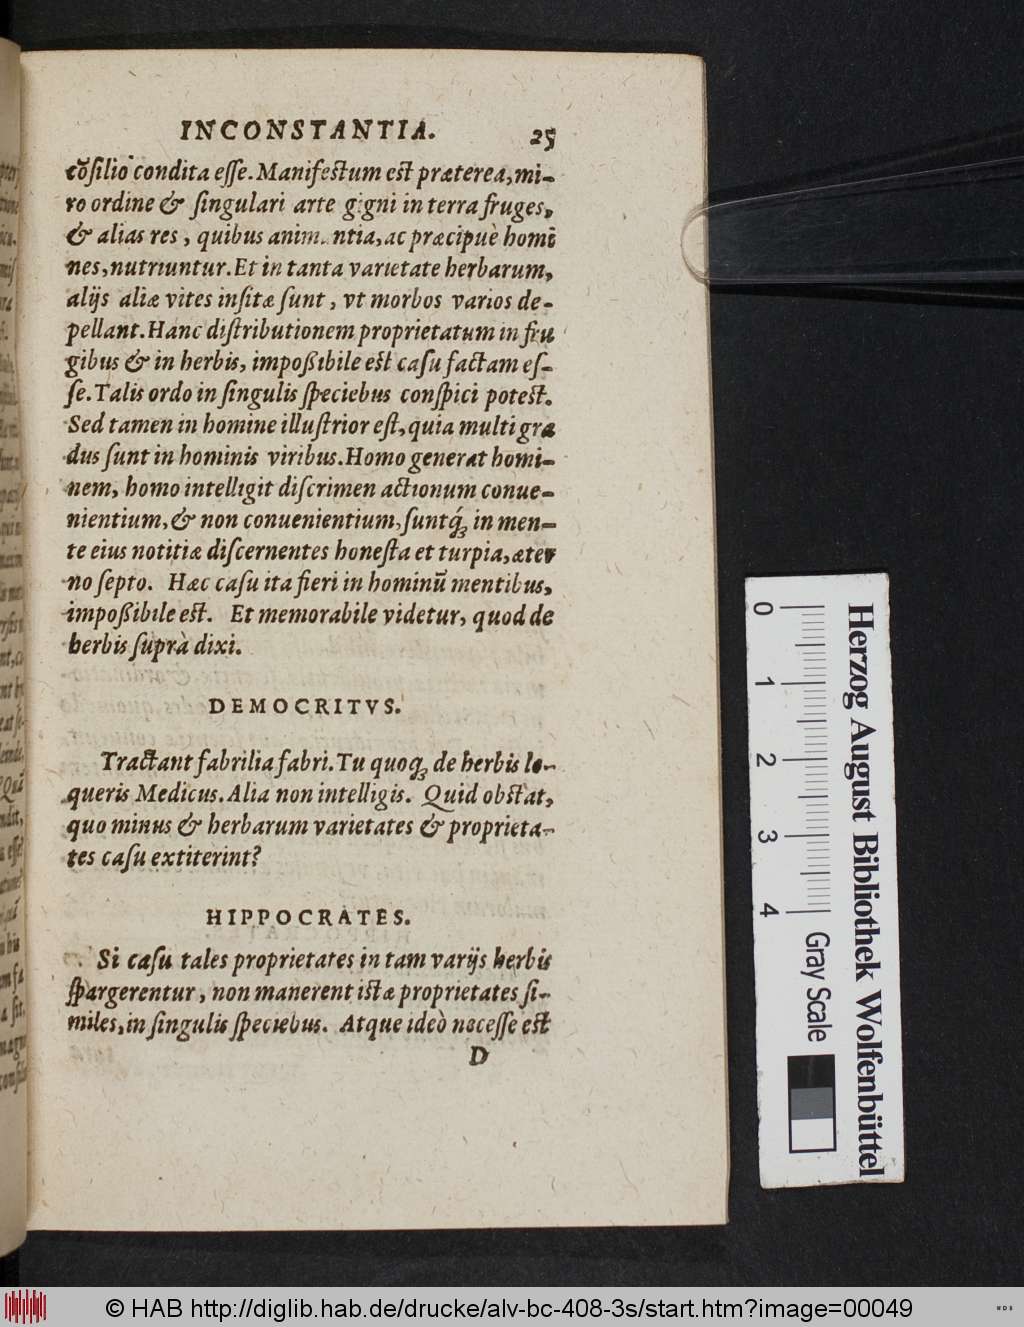 INCONSTANTIA. 25
cõsilio condita esse. Manifestum est præterea, mi-
ro ordine & singulari arte gigni in terra fruges,
& alias res, quibus anim ntia, ac præcipuè homi
nes, nutriuntur. Et in tanta varietate herbarum,
alijs aliæ vites insitæ sunt, vt morbos varios de-
pellant. Hanc distributionem proprietatum in fru
gibus & in herbis, impoßibile est casu factam es-
se. Talis ordo in singulis speciebus conspici potest.
Sed tamen in homine illustrior est, quia multi gra
dus sunt in hominis viribus. Homo generat homi-
nem, homo intelligit discrimen actionum conue-
nientium, & non conuenientium, suntq́; in men-
te eius notitiæ discernentes honesta et turpia, æter
no septo. Hæc casu ita fieri in hominũ mentibus,
impoßibile est. Et memorabile videtur, quod de
herbis suprà dixi.
DEMOCRITVS.
Tractant fabrilia fabri. Tu quoq; de herbis lo-
queris Medicus. Alia non intelligis. Quid obstat,
quo minus & herbarum varietates & proprieta-
tes casu extiterint?
HIPPOCRATES.
Si casu tales proprietates in tam varijs herbis
spargerentur, non manerent istæ proprietates si-
miles, in singulis speciebus. Atque ideò necesse est
D
0 1 2 3 4 Gray Scale
Herzog August Bibliothek Wolfenbüttel
© HAB http://diglib.hab.de/drucke/alv-bc-408-3s/start.htm?image=00049